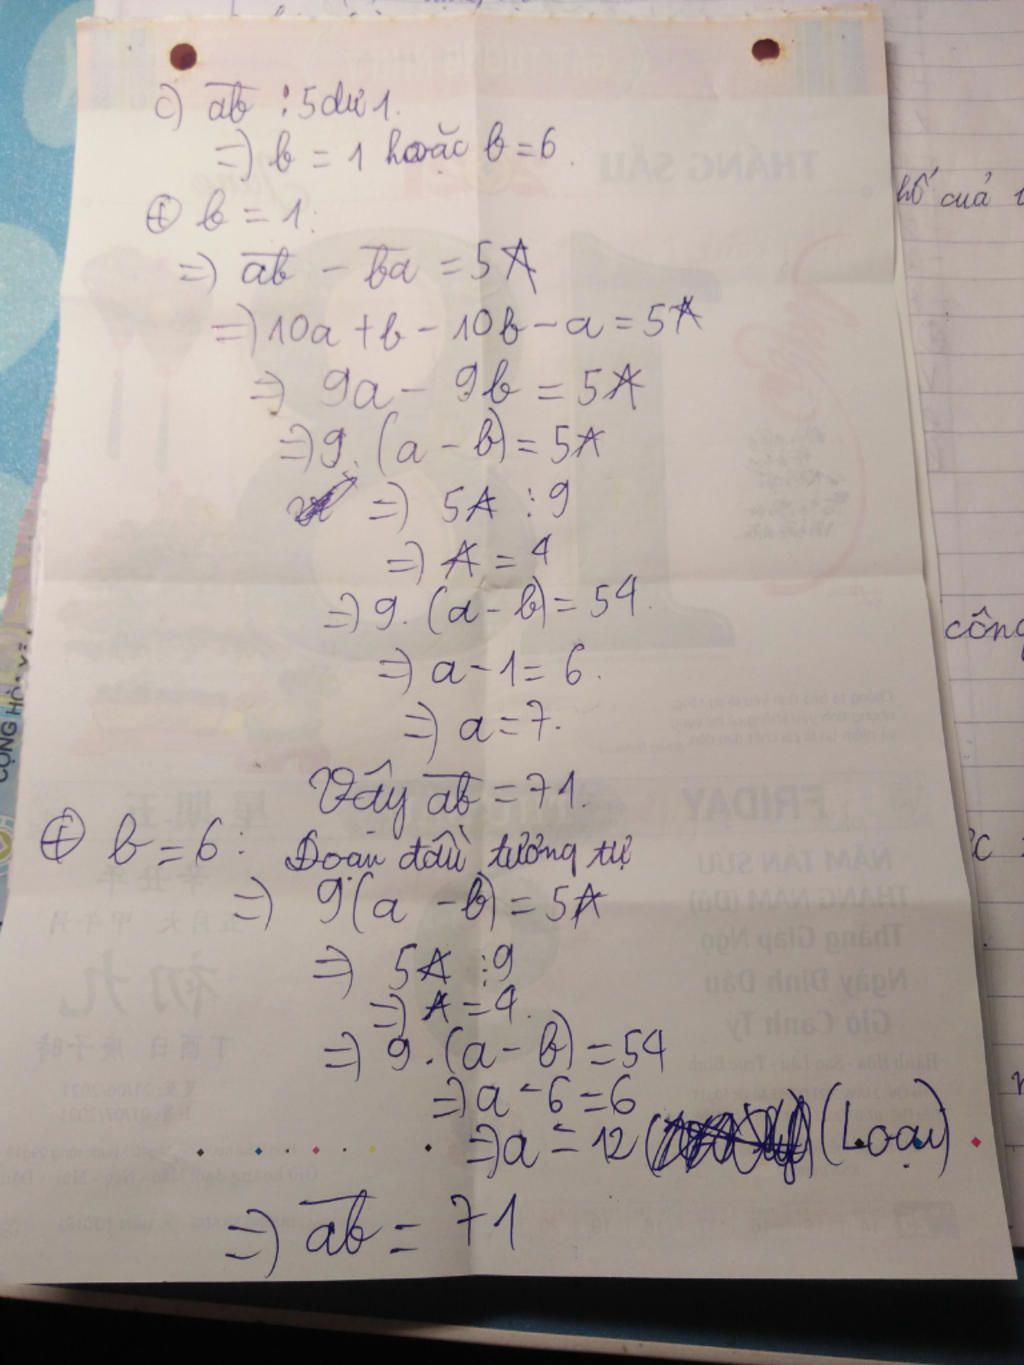 c) ab : 5 dư 1.
=) b = 1 hoặc b = 6.
⊕ b = 1:
=) ab - ba = 5A
=) 10a + b - 10b - a = 5A
=) 9a - 9b = 5A
=) 9. (a - b) = 5A
=) 5A ⋮ 9
=) A = 4
=) 9. (a - b) = 54.
=) a - 1 = 6.
=) a = 7.
Vậy ab = 71.
⊕ b = 6: Đoạn đầu tương tự
=) 9.(a - b) = 5A
=) 5A ⋮ 9
=) A = 4.
=) 9.(a - b) = 54
=) a - 6 = 6
=) a = 12 (Loại)
=) ab = 71
hố của
công
THÁNG SÁU
18
FRIDAY
NĂM TÂN SỬU
THÁNG NĂM (Đủ)
Tháng Giáp Ngọ
Ngày Đinh Dậu
Giờ Canh Tý
星期五
初九
丁酉日 庚子時